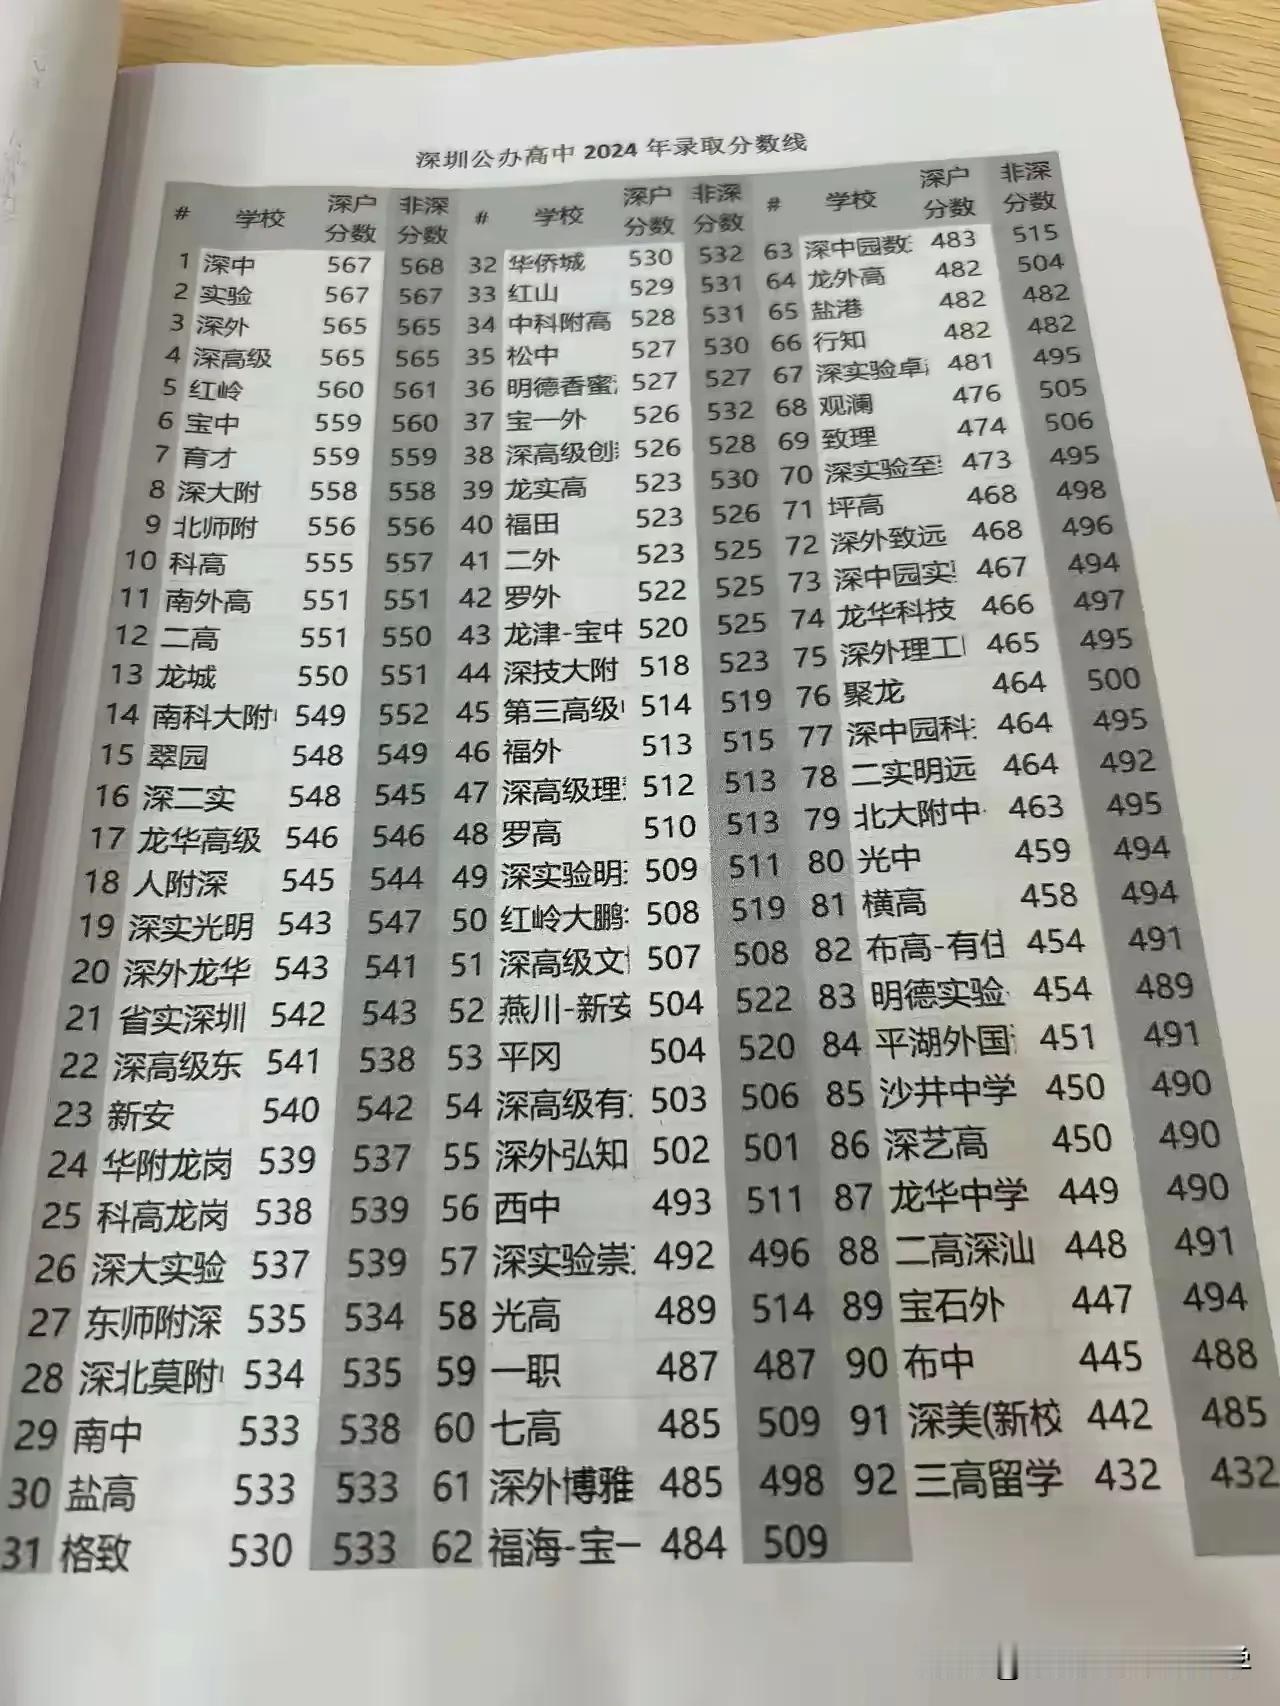 深圳公办高中 2024 年录取分数线
# 学校 深户分数 非深分数 # 学校 深户分数 非深分数 # 学校 深户分数 非深分数
1 深中 567 568 32 华侨城 530 532 63 深中园数 483 515
2 实验 567 567 33 红山 529 531 64 龙外高 482 504
3 深外 565 565 34 中科附高 528 531 65 盐港 482 482
4 深高级 565 565 35 松中 527 530 66 行知 482 482
5 红岭 560 561 36 明德香蜜 527 527 67 深实验卓 481 495
6 宝中 559 560 37 宝一外 526 532 68 观澜 476 505
7 育才 559 559 38 深高级创 526 528 69 致理 474 506
8 深大附 558 558 39 龙实高 523 530 70 深实验至 473 495
9 北师附 556 556 40 福田 523 526 71 坪高 468 498
10 科高 555 557 41 二外 523 525 72 深外致远 468 496
11 南外高 551 551 42 罗外 522 525 73 深中园实 467 494
12 二高 551 550 43 龙津-宝中 520 525 74 龙华科技 466 497
13 龙城 550 551 44 深技大附 518 523 75 深外理工 465 495
14 南科大附 549 552 45 第三高级 514 519 76 聚龙 464 500
15 翠园 548 549 46 福外 513 515 77 深中园科 464 495
16 深二实 548 545 47 深高级理 512 513 78 二实明远 464 492
17 龙华高级 546 546 48 罗高 510 513 79 北大附中 463 495
18 人附深 545 544 49 深实验明 509 511 80 光中 459 494
19 深实光明 543 547 50 红岭大鹏 508 519 81 横高 458 494
20 深外龙华 543 541 51 深高级文 507 508 82 布高-有住 454 491
21 省实深圳 542 543 52 燕川-新安 504 522 83 明德实验 454 489
22 深高级东 541 538 53 平冈 504 520 84 平湖外国 451 491
23 新安 540 542 54 深高级有 503 506 85 沙井中学 450 490
24 华附龙岗 539 537 55 深外弘知 502 501 86 深艺高 450 490
25 科高龙岗 538 539 56 西中 493 511 87 龙华中学 449 490
26 深大实验 537 539 57 深实验崇 492 496 88 二高深汕 448 491
27 东师附深 535 534 58 光高 489 514 89 宝石外 447 494
28 深北莫附 534 535 59 一职 487 487 90 布中 445 488
29 南中 533 538 60 七高 485 509 91 深美(新校 442 485
30 盐高 533 533 61 深外博雅 485 498 92 三高留学 432 432
31 格致 530 533 62 福海-宝一 484 509